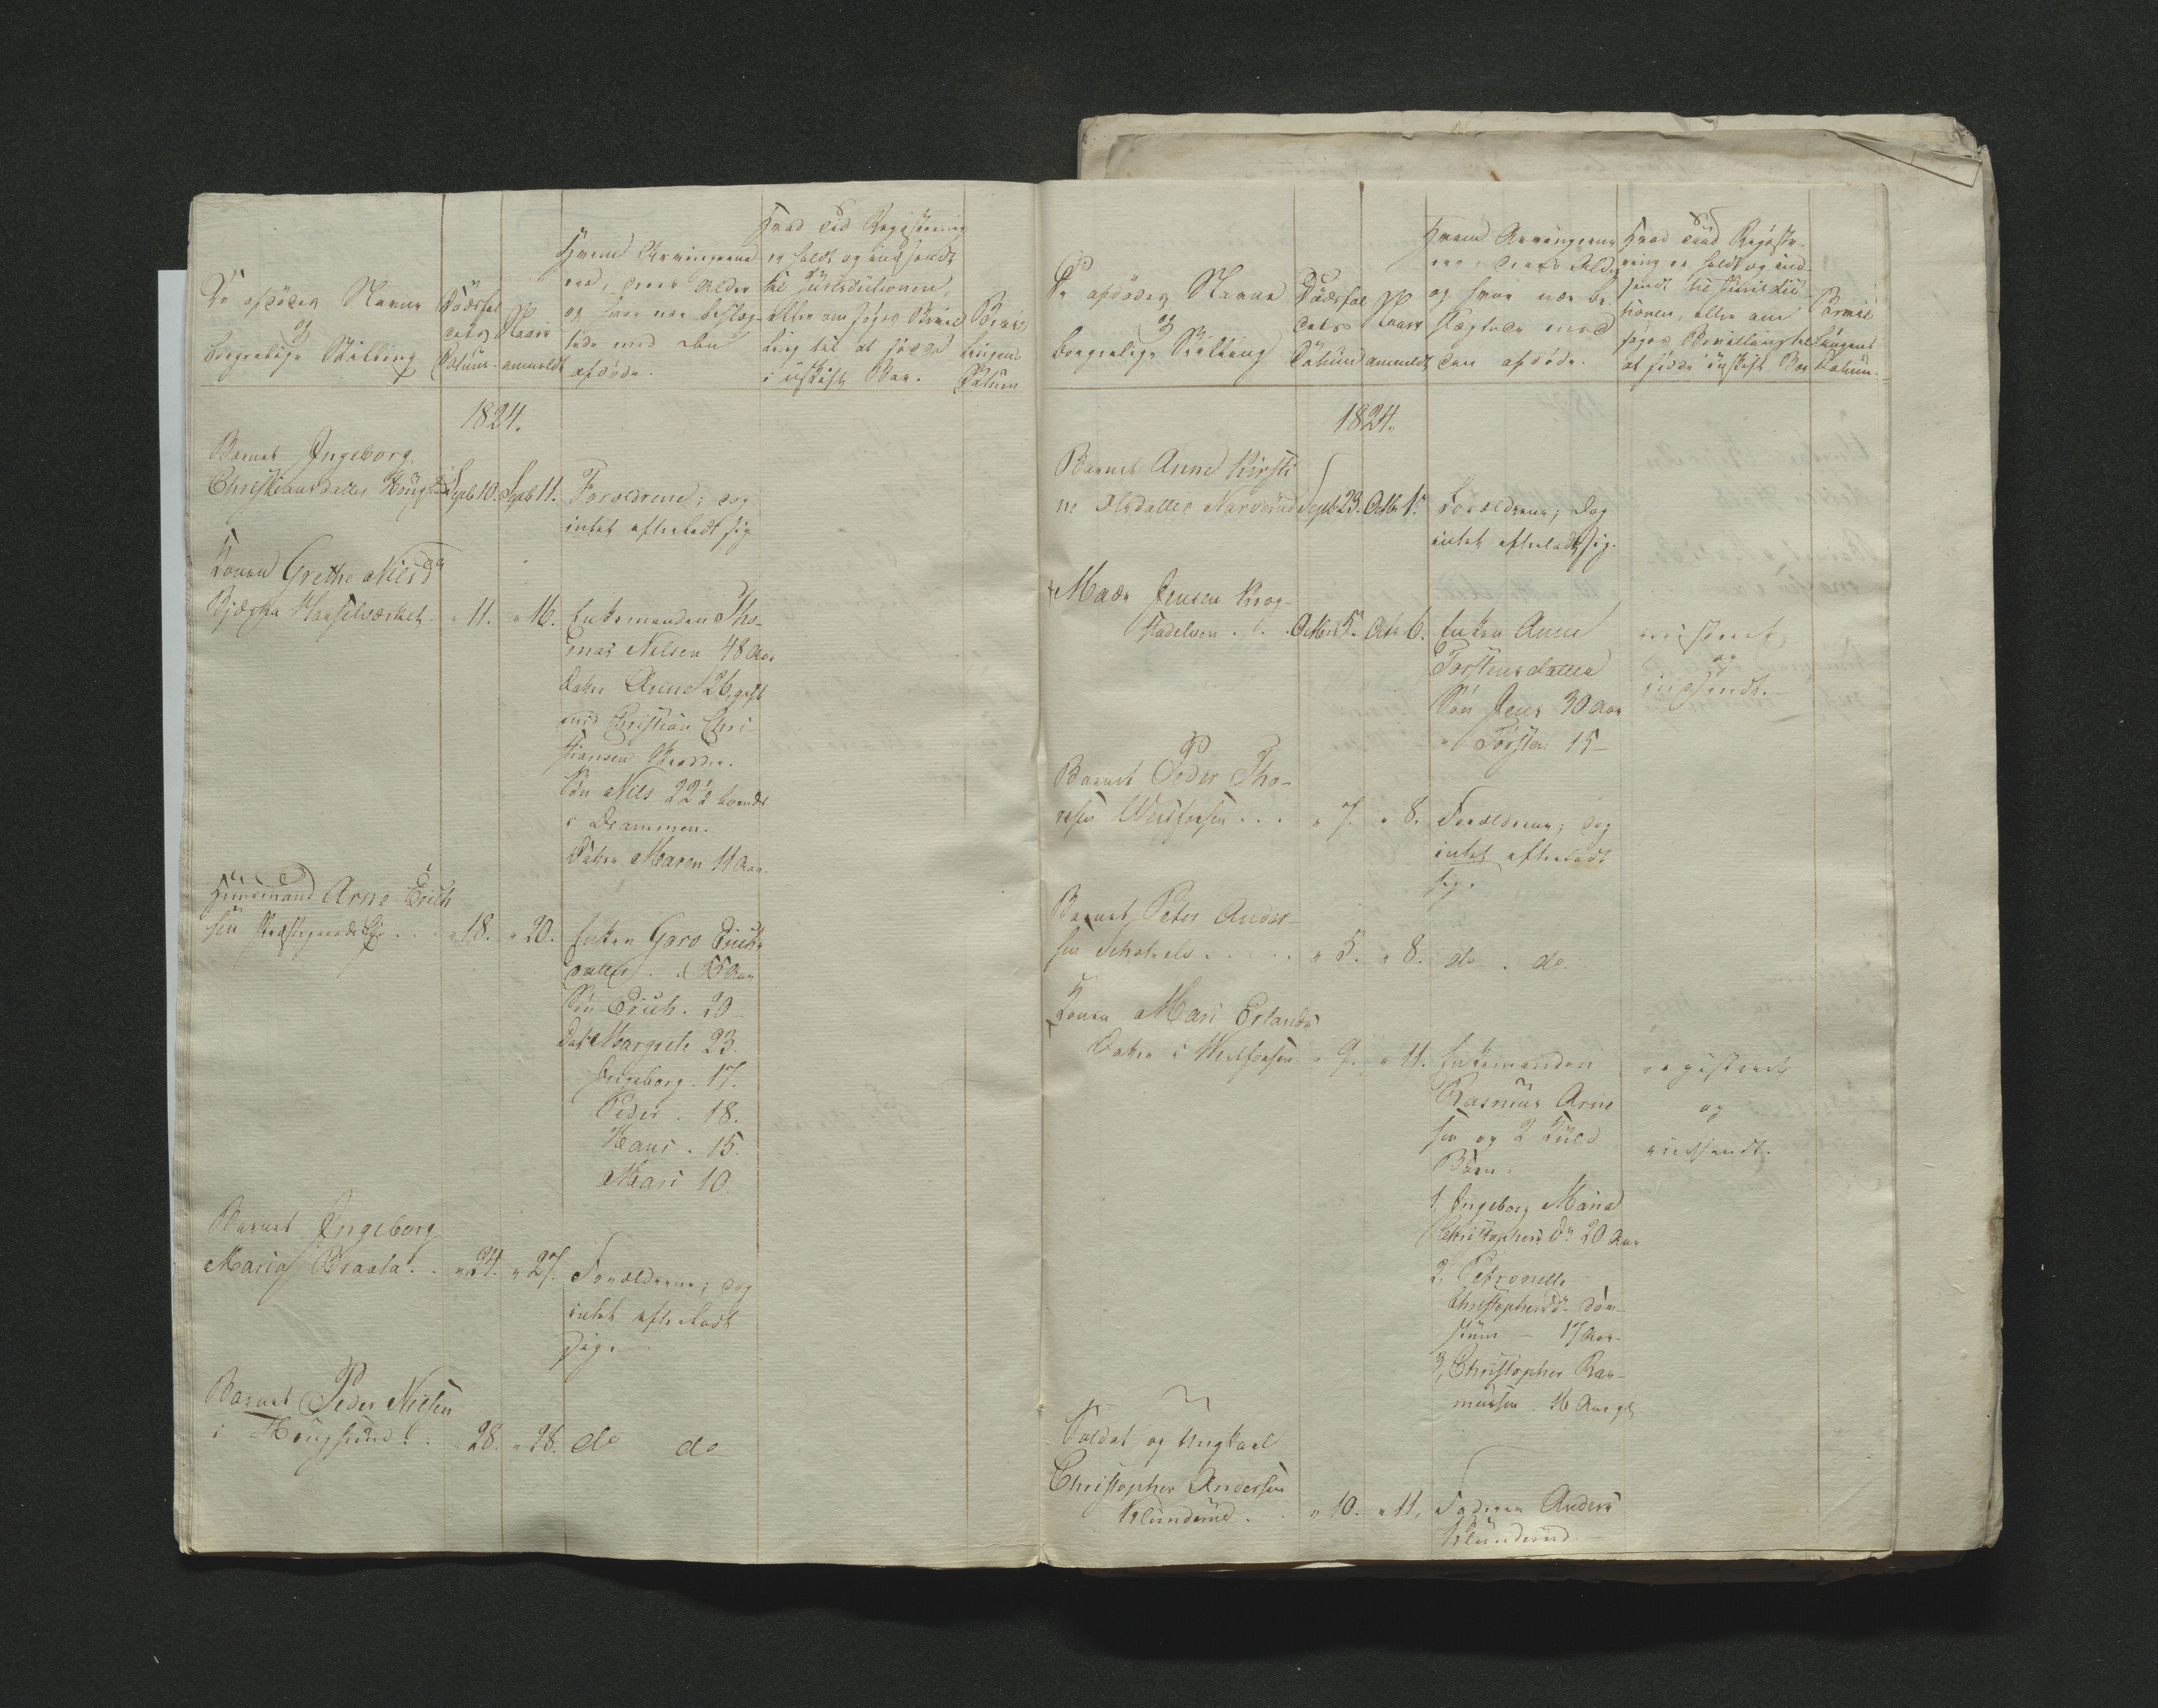 De afdödes Navne
og
borgerlige Stilling
Dödsfal
dets
Datum.
Naar
anmeldt
Hvem Arvingerne
ere, deres Alder
og hvor nær beslæg-
tede med den
afdöde.
Hvad Tid Registrering
er holdt og indsendt
til Jurisdictionen,
eller om söges Bevil
ling til at sidde
i uskift Boe.
Bevil
lingens
Datum
1824.
Barnet Ingeborg
Christiansdatter Hougsund Septb 10. Septb 11. Forældrene; dog
intet efterladt sig
Konen Grethe Nilsd
Hasselværket. " 11. " 16. Enkemanden Tho-
mas Nilsen 48 Aar
Datter Anne 26, gift
med Christian Chri
stiansen
Sön Nils 22
i Drammen.
Datter Maren 11 Aar.
Huusmand Arne Erich
sen Præstegaards Eje . . . " 18. " 20. Enken Garo Erichs
datter . . 55 Aar
Sön Erich . 20
Datr Margrete 23.
Ingeborg . 17.
Peder . 18.
Hans . 15.
Mari 10
Barnet Ingeborg
Maria Braata . . " 24. " 27. Forældrene; dog
intet efterladt
sig.
Barnet Peder Nilsen
i Hougsund . . " 28. " 28. do do
De afdödes Navne
og
borgerlige Stilling
Dödsfal
dets
Datum
Naar
anmeldt
Hvem Arvingerne
ere, deres Alder
og hvor nær be-
slægtede med
den afdöde.
Hvad Tiid Registe-
ring er holdt og ind-
sendt til Jurisdic-
tionen, eller om
söges Bevilling til
at sidde i uskift Boe
Bevil
lingens
Datum.
1824.
Barnet Anne Kirsti
ne Olsdatter Narverud Septb 23. Octbr 1. Forældrene; dog
intet efterladt sig.
Mads Jensen Krog-
stadelven . . . Octbr 5. Octbr 6. Enken Anne
Torstensdatter
Sön Jens 30 Aar
" Torsten 15 -
registeret
og
indsendt.
Barnet Peder Tho-
resen Westfossen . . . " 7. " 8. Forældrene; dog
intet efterladt
sig.
Barnet Peter Ander-
sen . . . . . " 5. " 8. do . do.
Konen Mari Erlands
Datter i Westfossen " 9. " 11. Enkemanden
Rasmus Arne
sen og 2 Kuld
Börn.
registeret
og
indsendt.
1, Ingeborg Maria
Christophersdr 20 Aar
2, Petronelle
Christophersdr
17 Aar.
3, Christopher Ras-
mussen . 16 Aar gl
Soldat og Ungkarl
Christopher Andersen
Klunderud . . " 10. " 11. Faderen Anders
Klunderud